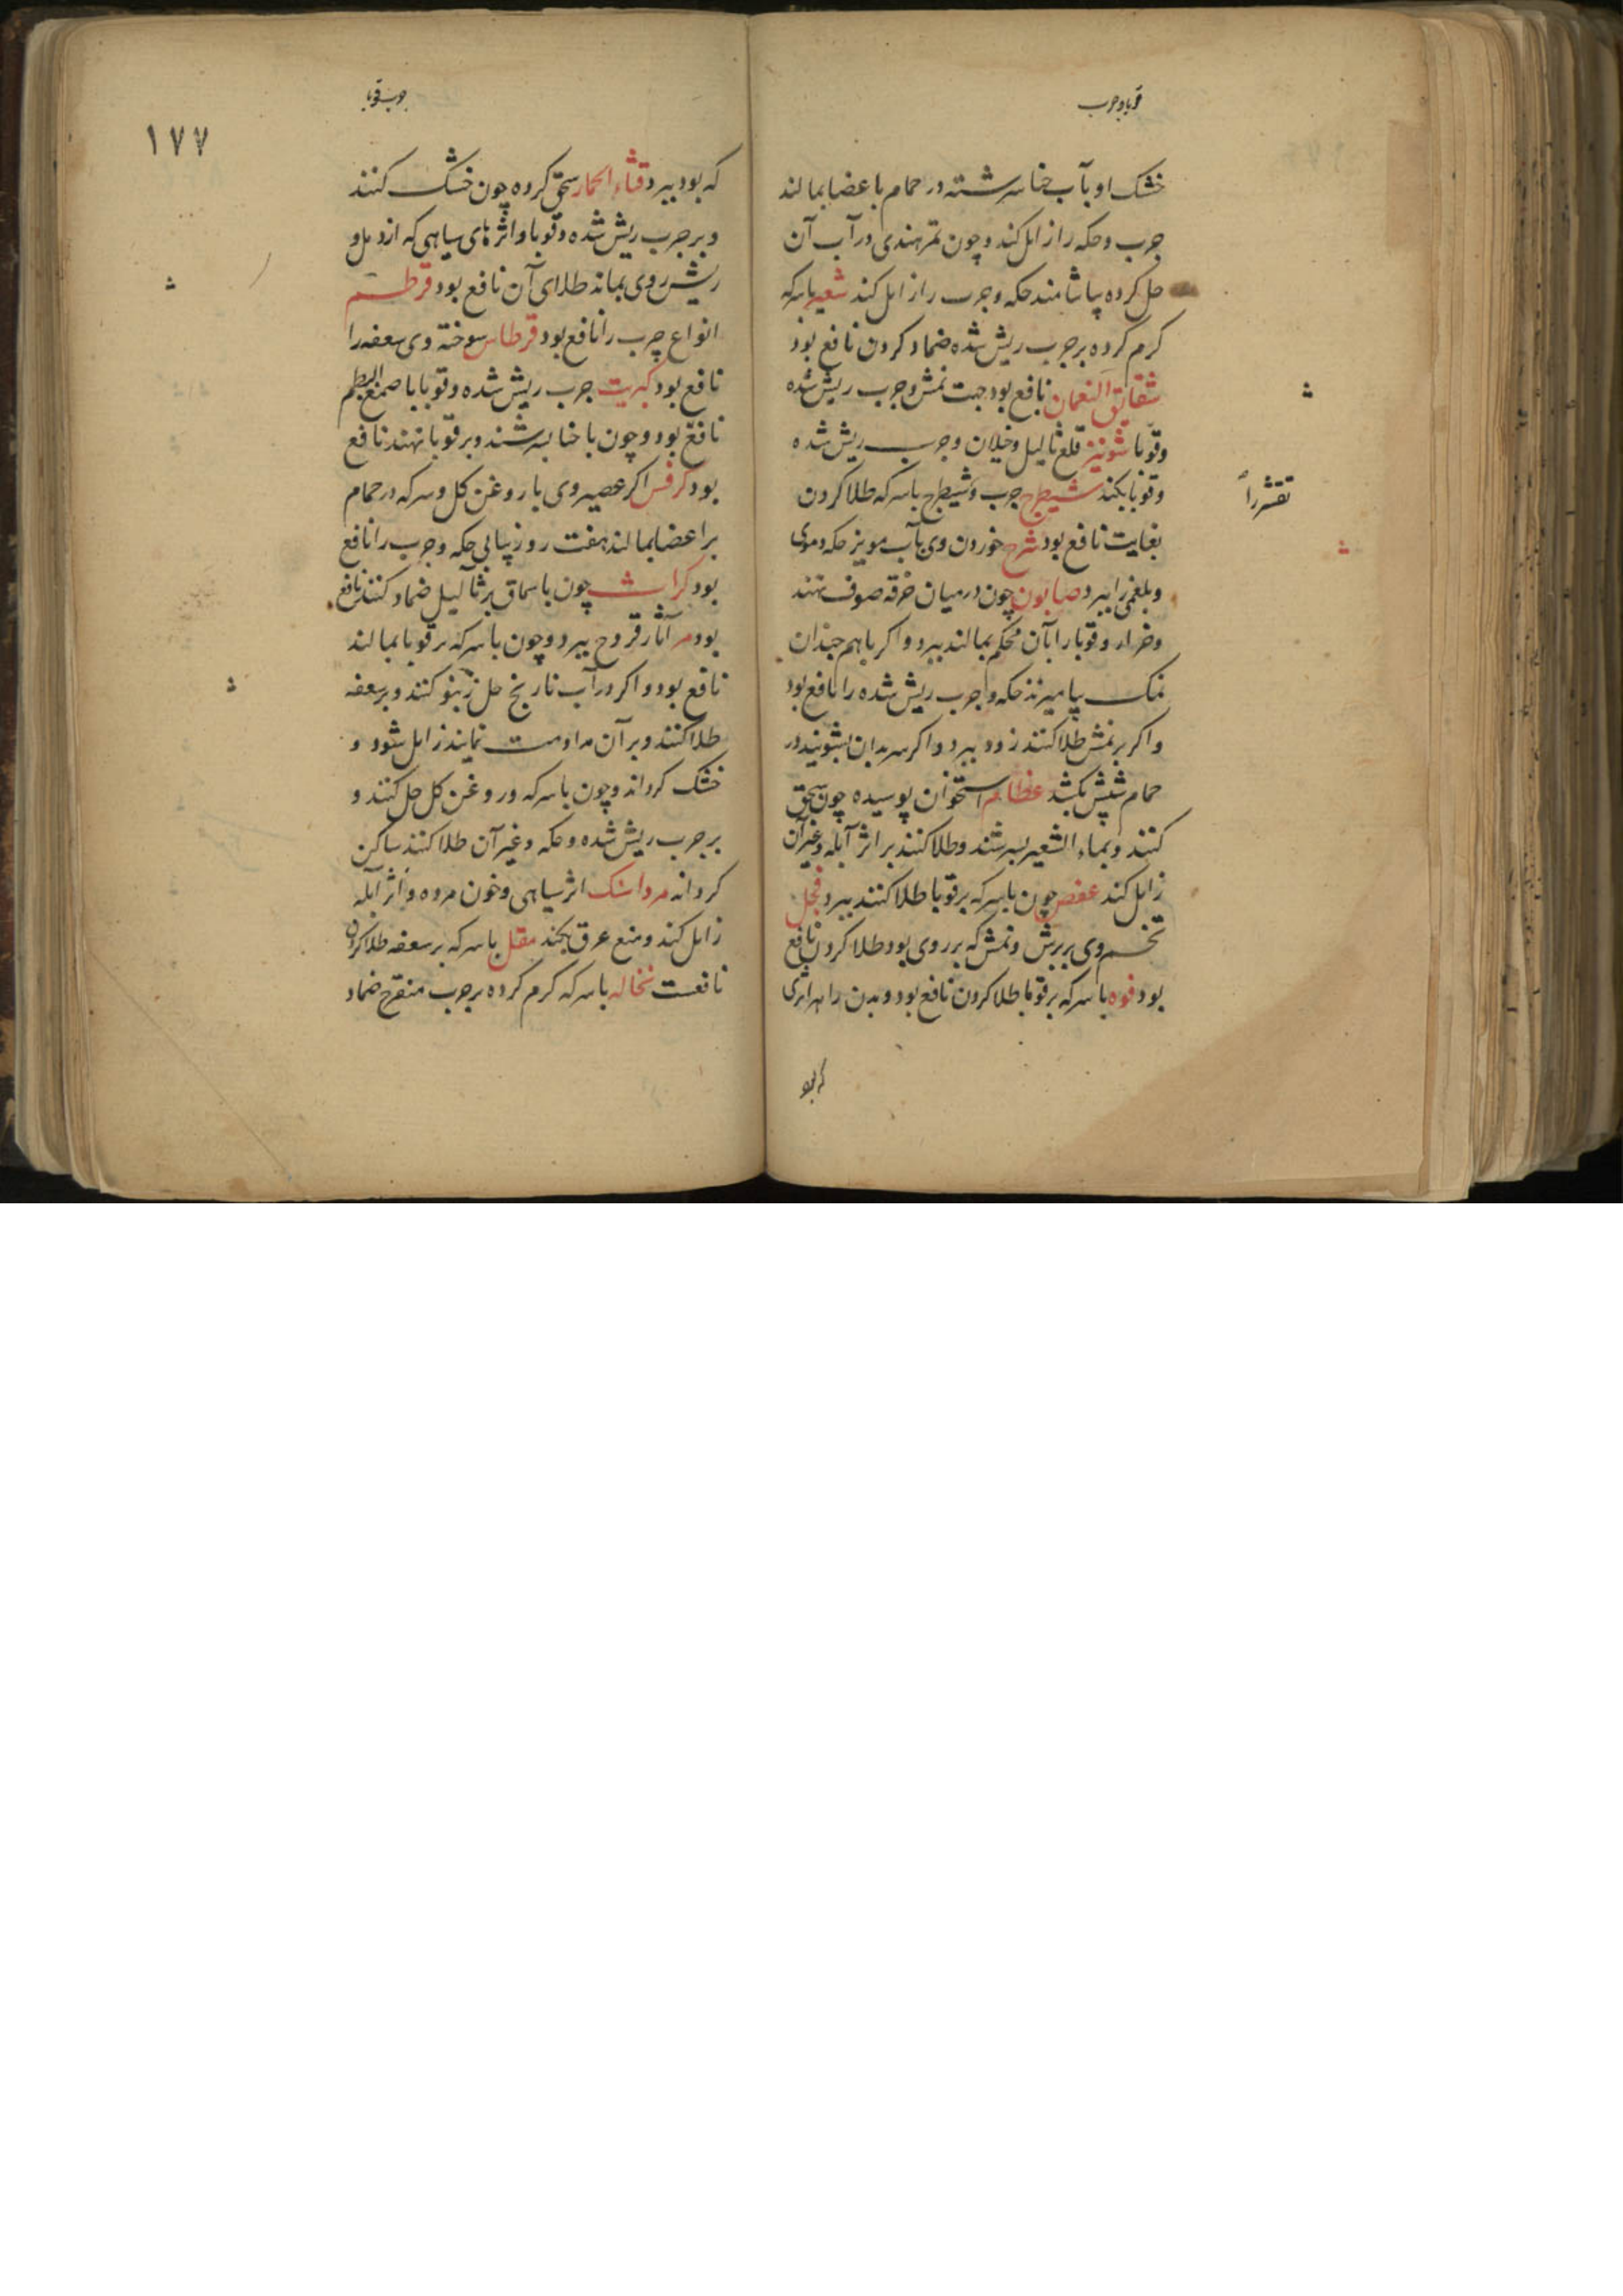 قوبا و جرب
خشک او بآب حنا سرشته در حمام باعضا بمالند
جرب و حکه را زایل کند و چون تمر هندی در آب آن
حل کرده بیاشامند حکه و جرب را زایل کند شعیر باسرکه
کرم کرده بر جرب ریش شده ضماد کردن نافع بود
شقایق النعمان نافع بود جهت نمش و جرب ریش شده
و قوبا شونیز قلع ثالیل و خیلان و جرب ریش شده
و قوبا بکند شیطرج جرب و شیطرج باسرکه طلا کردن
تقشر را
بغایت نافع بود خوردن وی بآب مویز حکه دموی
و بلغمی را ببرد صابون چون در میان خرقه صوف نهند
و حزاز و قوبا را بآن محکم بمالند ببرد و اکر با هم چندان
نمک بیامیزند حکه و جرب ریش شده را نافع بود
و اکر بر نمش طلا کنند زود ببرد و اکر سر بدان بشویند در
حمام شپش بکشد عظام استخوان پوسیده چون سحق
کنند و بماء الشعیر بسرشند و طلا کنند بر اثر آبله و غیر آن
زایل کند عفص چون باسرکه بر قوبا طلا کنند ببرد فجل
تخم وی بر برش و نمش که بر روی بود طلا کردن نافع
بود فوه باسرکه بر قوبا طلا کردن نافع بود و بدن را هر اثری
که بود
جرب قوبا
١٧٧
که بود ببرد قثاء الحمار سحق کرده چون خشک کنند
و بر جرب ریش شده و قوبا و اثرهای سیاهی که از دمل و
ریش روی بماند طلای آن نافع بود قرطم
انواع جرب را نافع بود قرطاس سوخته وی سعفه را
نافع بود کبریت جرب ریش شده و قوبا با صمغ البطم
نافع بود و چون با حنا بسرشند و بر قوبا نهند نافع
بود کرفس اکر عصیر وی با روغن کل و سرکه در حمام
بر اعضا بمالند هفت روز پیاپی حکه و جرب را نافع
بود کراث چون با سماق بر ثآلیل ضماد کنند نافع
بود مر آثار قروح ببرد و چون باسرکه بر قوبا بمالند
نافع بود و اکر در آب نارنج حل کنند و بر سعفه
طلا کنند و بر آن مداومت نمایند زایل شود و
خشک کرداند و چون باسرکه و روغن کل حل کنند و
بر جرب ریش شده و حکه و غیر آن طلا کنند ساکن
کرداند مرداسنک اثر سیاهی و خون مرده و اثر آبله
زایل کند و منع عرق بکند مقل باسرکه بر سعفه طلا کردن
نافعست نخاله باسرکه کرم کرده بر جرب متقرح ضماد